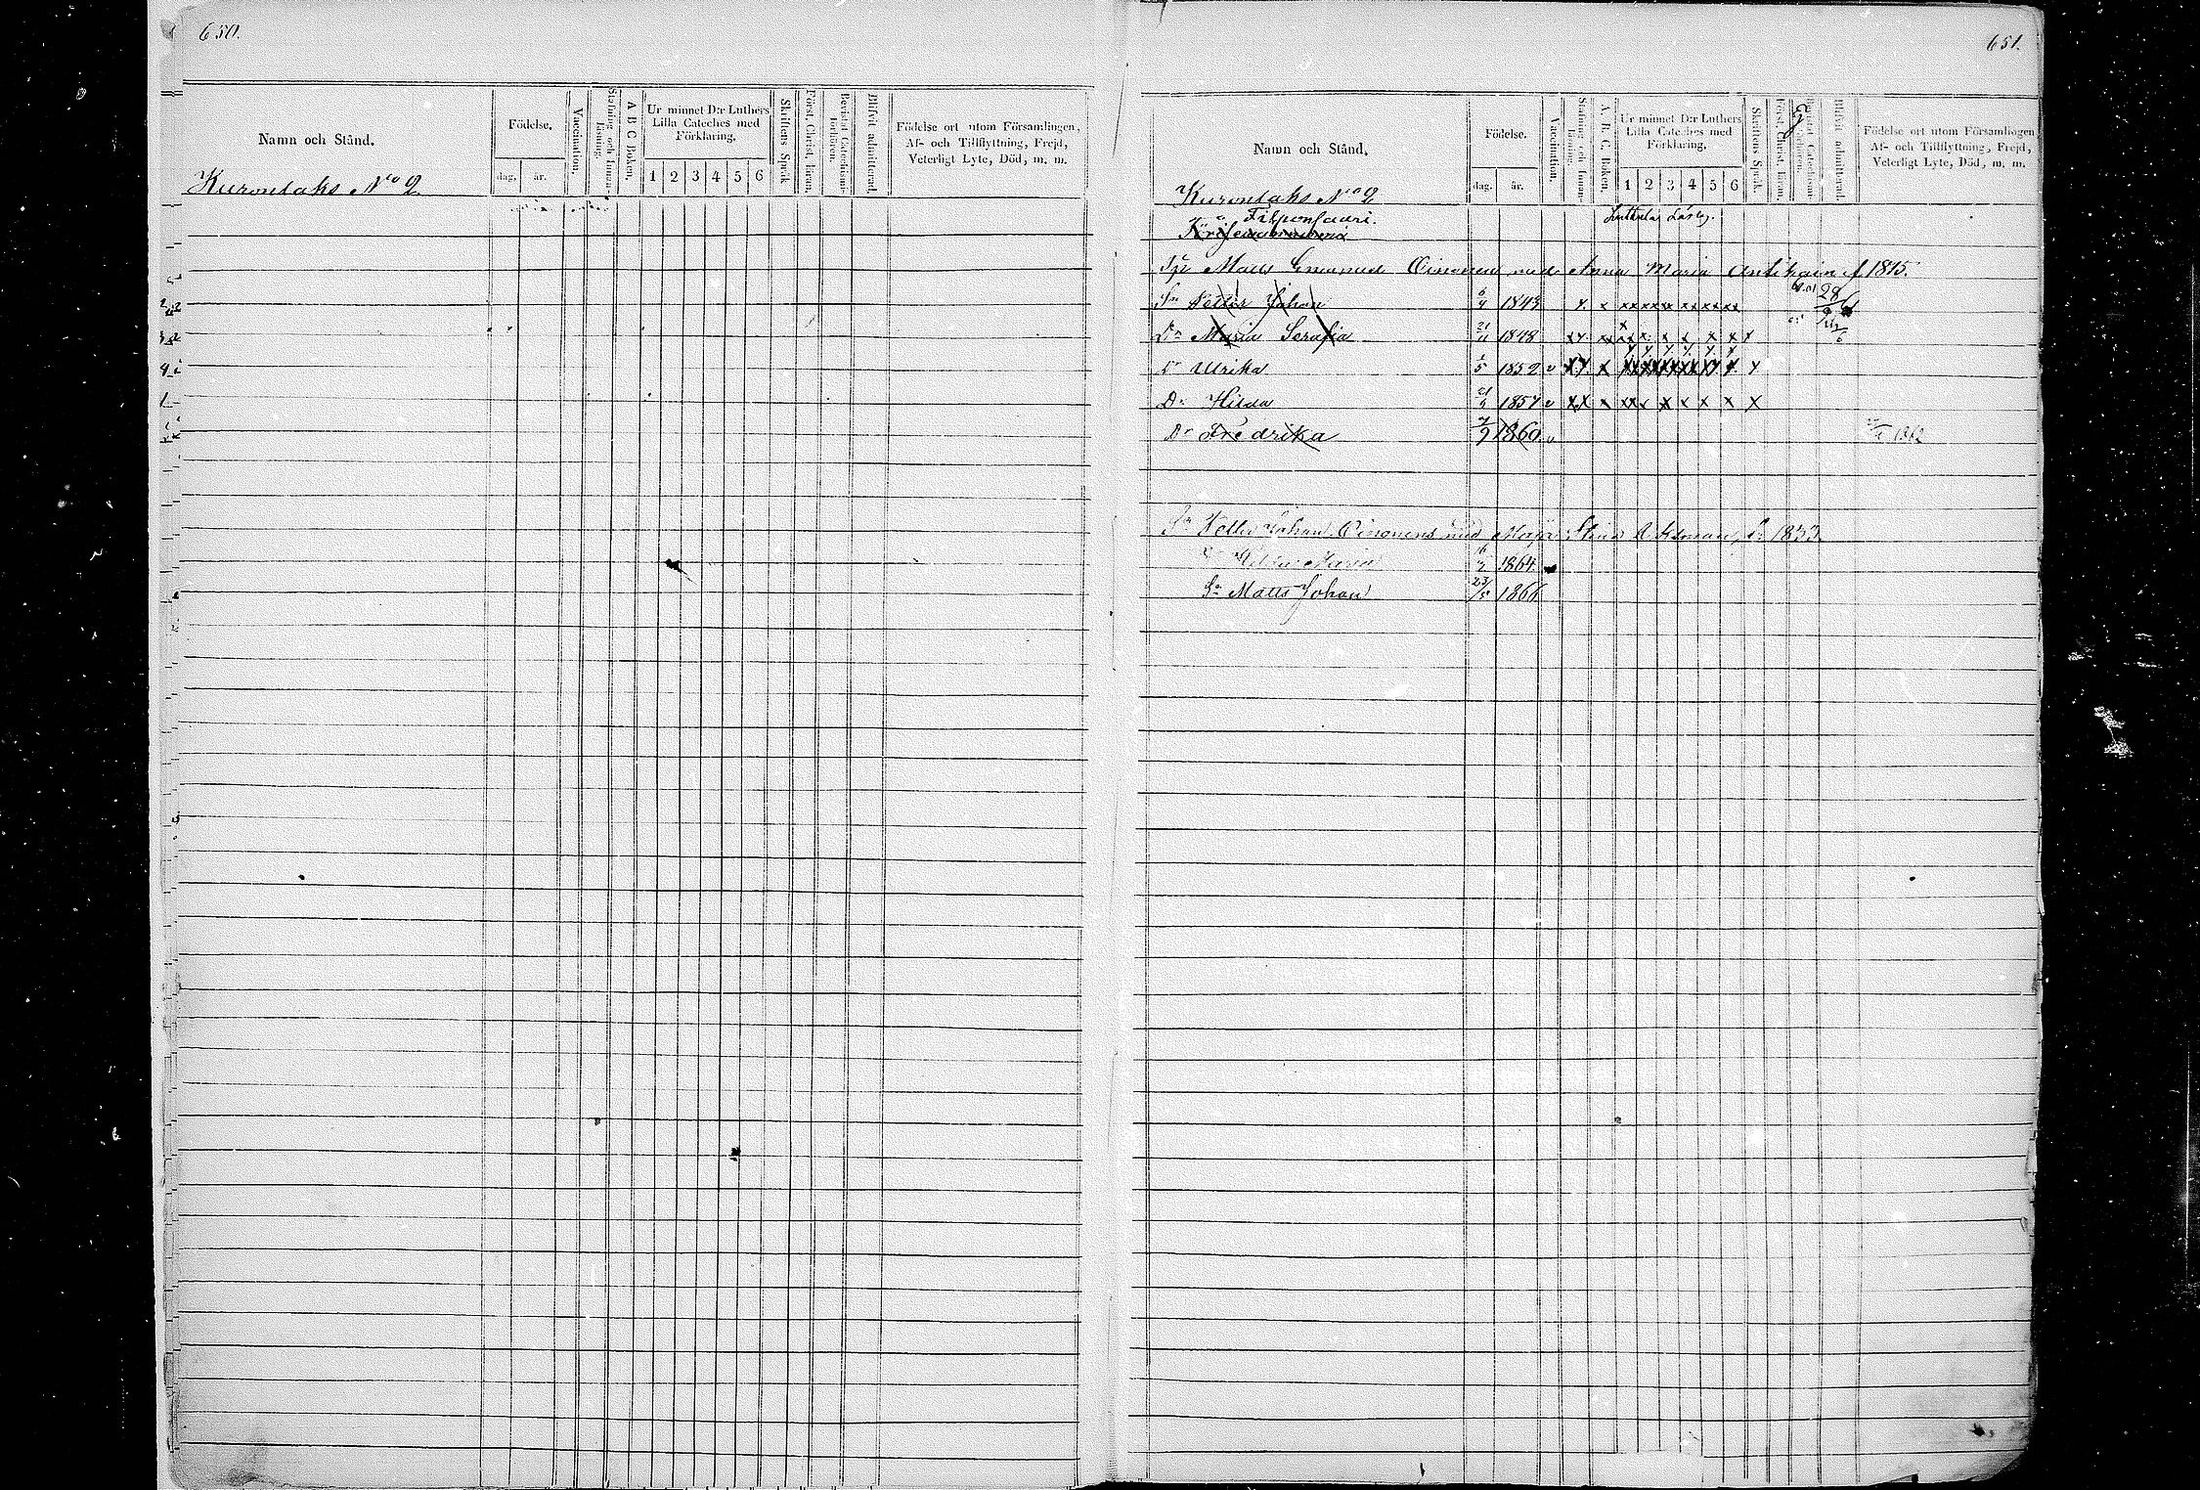 650.
Namn och Stånd.
Födelse.
dag. år.
Vaccination.
Stafning och Innan-läsning.
A B C Boken.
Ur minnet D:r Luthers Lilla Cateches med Förklaring.
1 2 3 4 5 6
Skriftens Språk
Först. Christ. läran.
Bevistat Catechismi-förhören.
Blifvit admitterad.
Födelse ort utom Församlingen,
Af- och Tillflyttning, Frejd,
Veterligt Lyte, Död, m. m.
Kuronlaks No 2
651.
Namn och Stånd.
Födelse.
dag. år.
Vaccination.
Stafning och Innan-läsning.
A B C Boken.
Ur minnet D:r Luthers Lilla Cateches med Förklaring.
1 2 3 4 5 6
Skriftens Språk.
Först. Christ. läran.
Bevistat Catechismi-förhören.
Blifvit admitterad.
Födelse ort utom Församlingen
Af- och Tillflyttning, Frejd,
Veterligt Lyte, Död, m. m.
Kuronlaks No 2
Matts Emanuel Oinonen med Anna Maria f. 1815.
Sn Petter Johan 6/4 1843 x x xx xx xx xx xx xx 28/9 61
Dr Maria Serafia 21/11 1848 xx xx xx x x x x x x
Dr Ulrika 1/5 1852 v xx x xx xx xx xx xx x x
Dr Hilda 21/4 1857 v xx x xx x x x x x
Dr Fredrika 9 1860 v 1862
Sn Petter Johan Oinonens med Maja Stina f. 1833
Maria 16/2 1864
Sn Matts Johan 23/5 1866